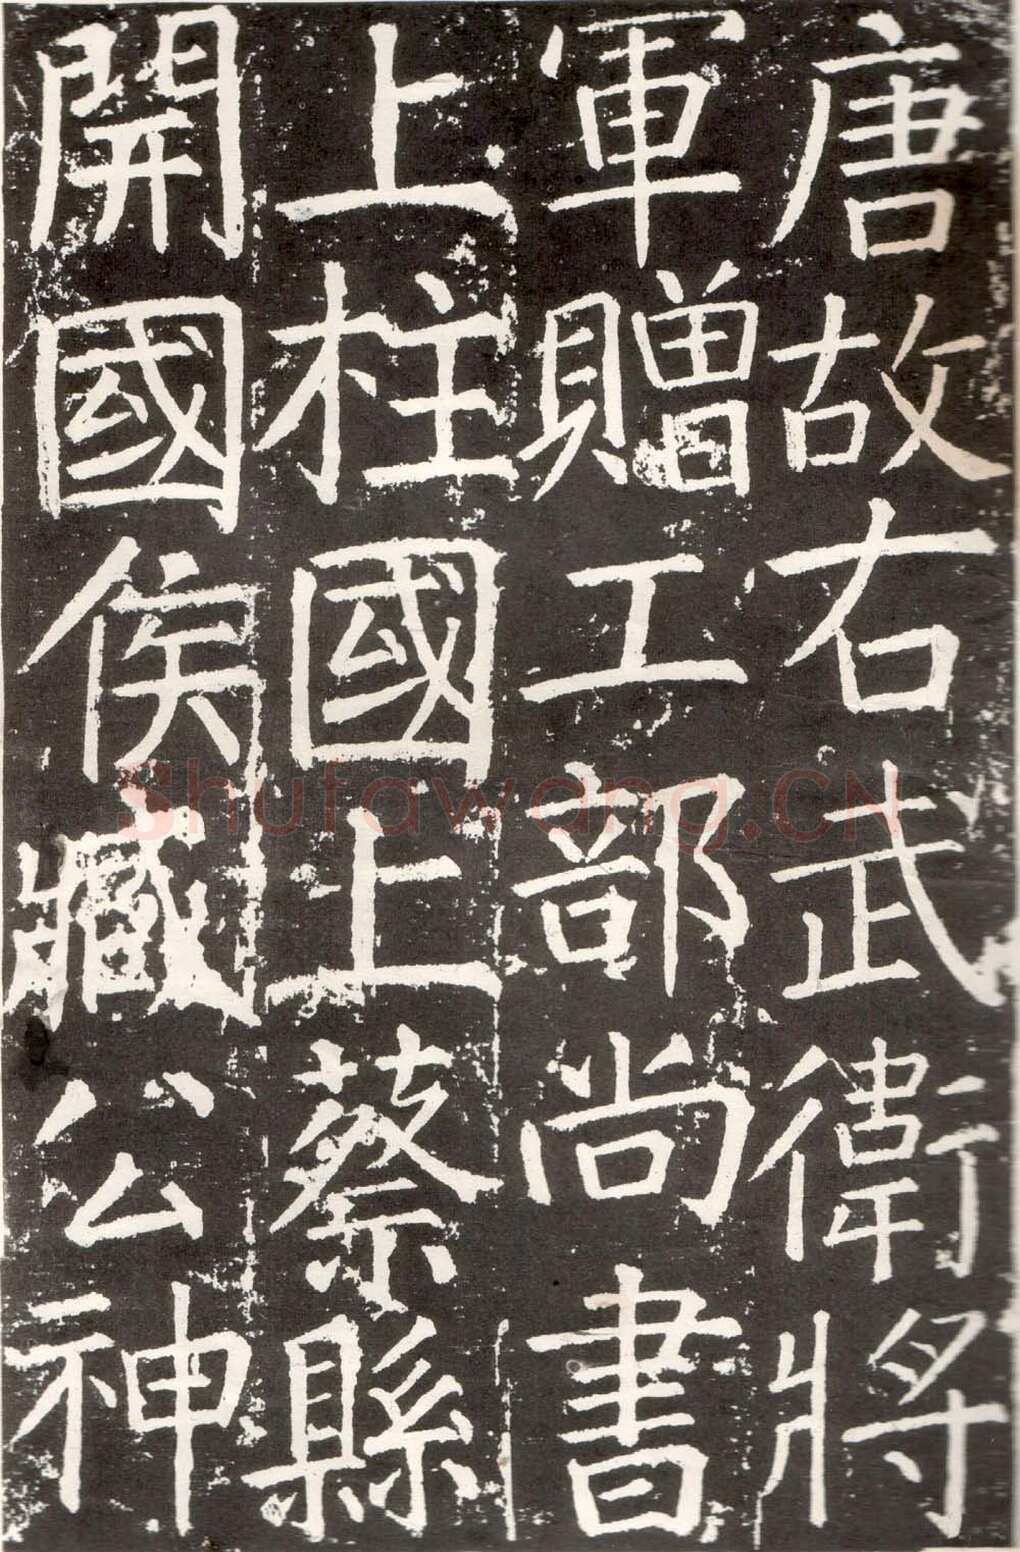 唐故右武衛將
軍贈工部尚書
上柱國上蔡縣
開國侯臧公神
Shufawang.CN